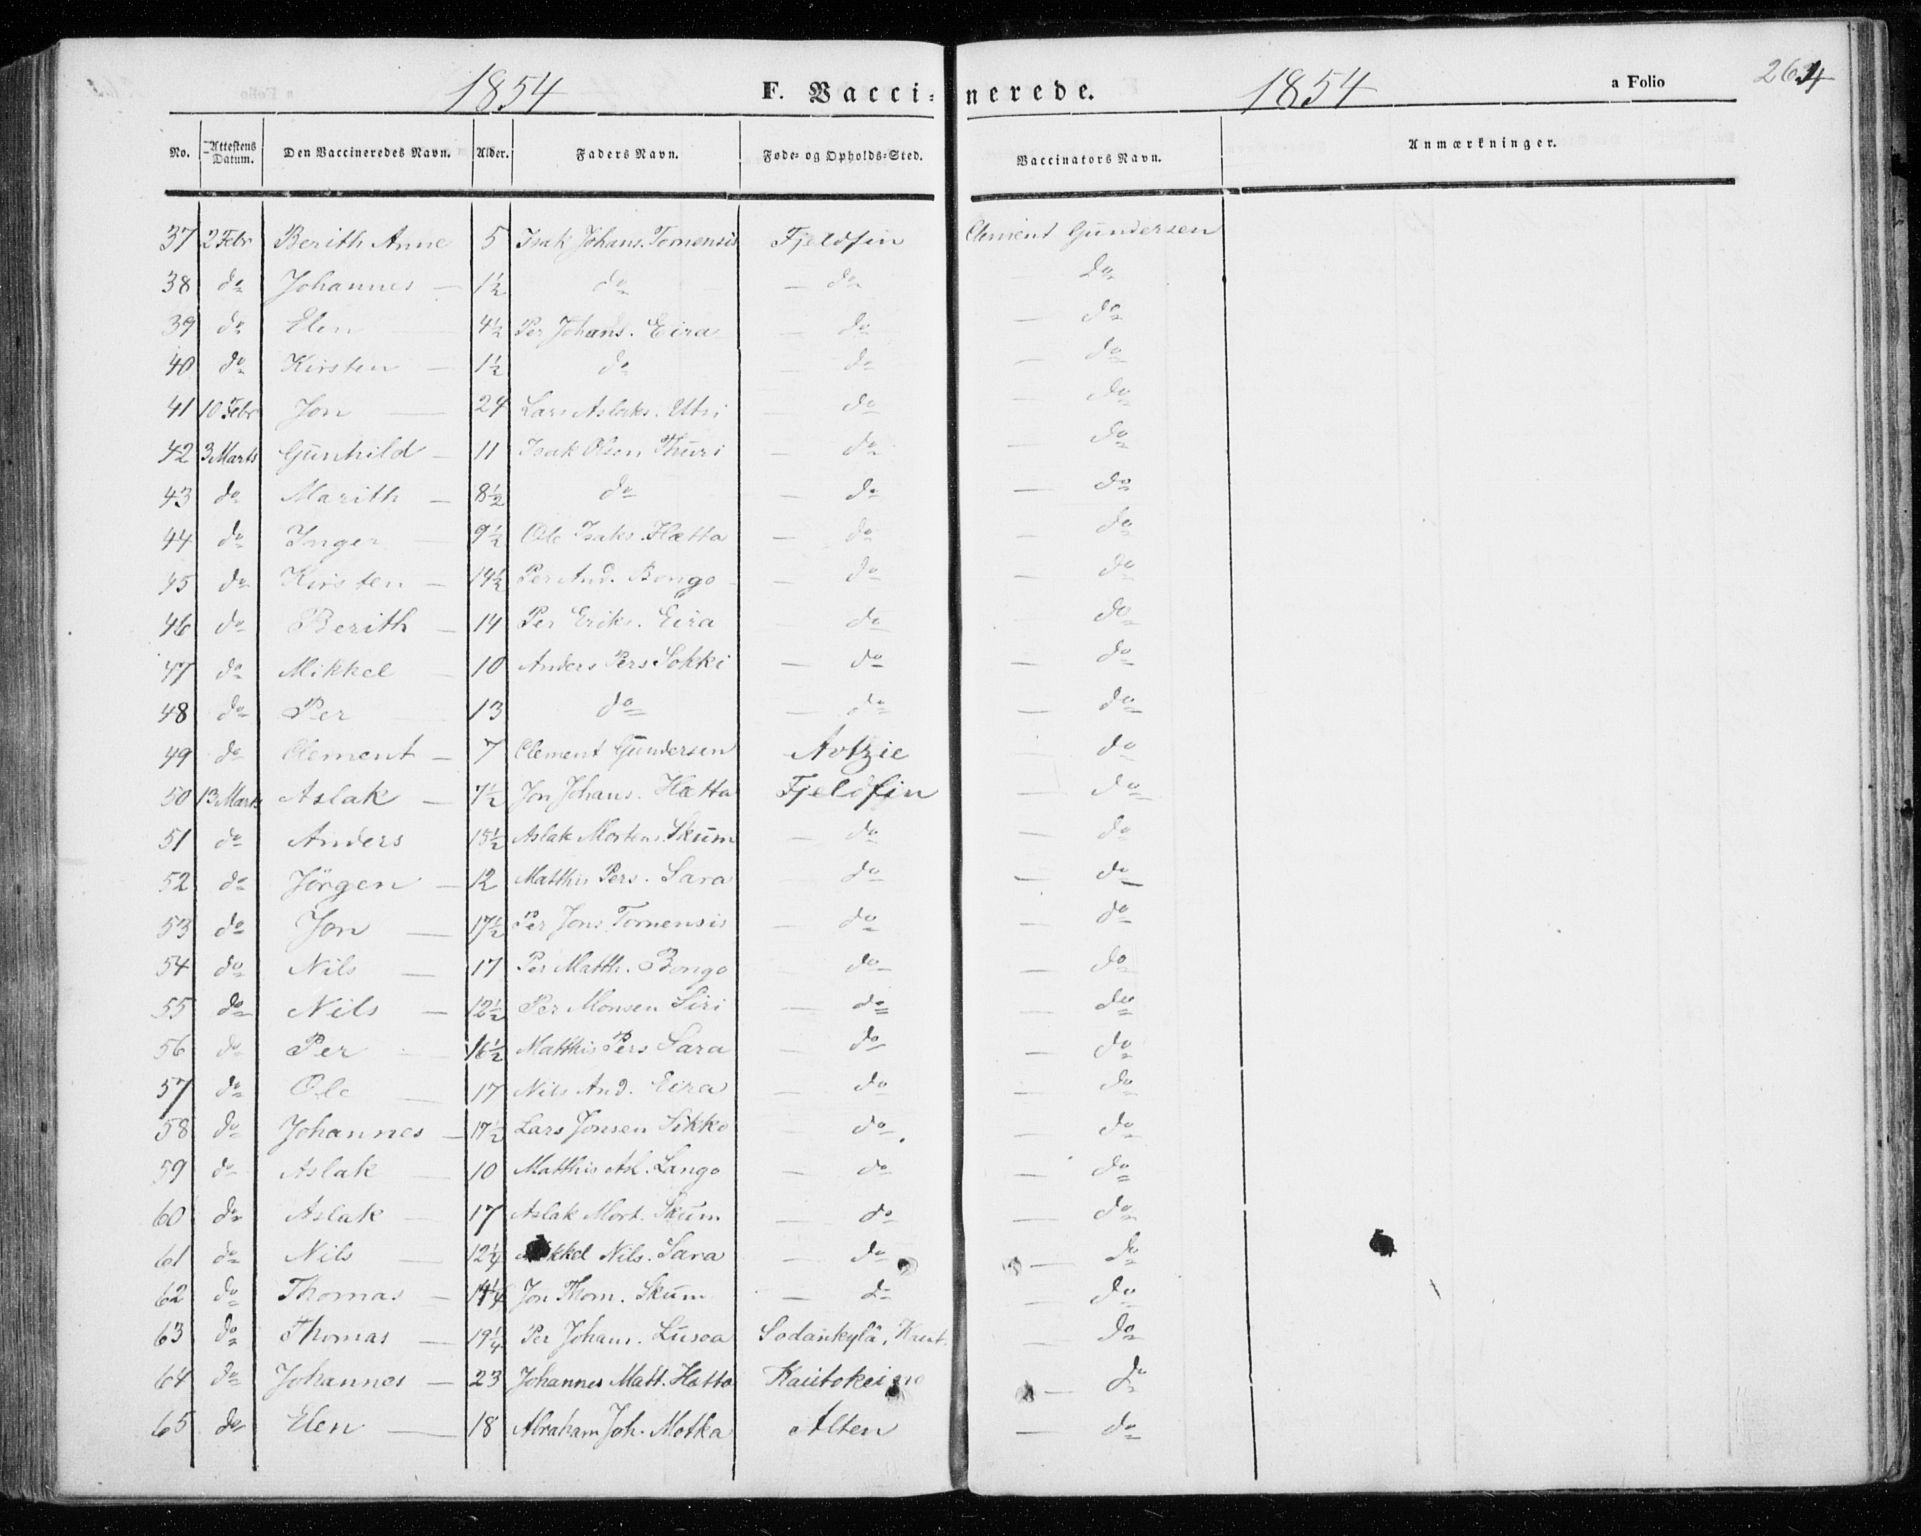 1854 F. Vaccinerede. 1854 a Folio 264
No. Attestens Datum. Den Vaccineredes Navn. Alder. Faders Navn. Føde- og Opholds-Sted. Vaccinators Navn. Anmærkninger.
37 2 Febr Berith Anne 5 Isak Johans. Tornensis Fjeldfin Clement Gundersen
38 do Johannes — 1½ do — do — do
39 do Elen — 4½ Per Johans. Eira — do — do
40 do Kirsten — 1½ do — do — do
41 10 Febr Jon — 24 Lars Aslaks. Utsi — do — do
42 3 Marts Gunhild — 11 Isak Olsen Thuri — do — do
43 do Marith — 8½ do — do — do
44 do Inger — 9½ Ole Isaks. Hætta — do — do
45 do Kirsten — 14½ Per And. Bongo — do — do
46 do Berith — 14 Per Eriks. Eira — do — do
47 do Mikkel — 10 Anders Pers Sokki — do — do
48 do Per — 13 do — do — do
49 do Clement — 7 Clement Gundersen Avtzie — do
50 13 Marts Aslak — 7½ Jon Johans. Hætta Fjeldfin — do
51 do Anders 15½ Aslak Mortens. Skum — do — do
52 do Jörgen — 12 Matthis Pers. Sara — do — do
53 do Jon — 17½ Per Jons. Tornensis — do — do
54 do Nils — 17 Per Matth. Bongo — do — do
55 do Nils — 12½ Per Monsen Siri — do — do
56 do Per — 16½ Matthis Pers Sara — do — do
57 do Ole — 17 Nils And. Eira — do — do
58 do Johannes — 17½ Lars Jonsen Sikko — do — do
59 do Aslak — 10 Matthis Lango — do — do
60 do Aslak — 17 Aslak Mort. Skum — do — do
61 do Nils — 12¼ Mikkel Nils. Sara — do — do
62 do Thomas — 14¼ Jon Thom. Skum — do — do
63 do Thomas — 19¼ Per Johans. Lusoa Sodankylä, Kaut. — do
64 do Johannes — 23 Johannes Matt. Hatta Kautokeino — do
65 do Elen — 18 Abraham Joh. Motka Alten — do